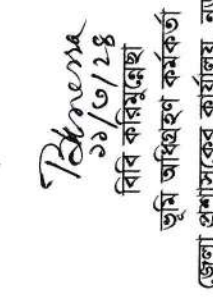 ১১/৩/২৪
বিবি করিমুন্নেছা
ভূমি অধিগ্রহণ কর্মকর্তা
জেলা প্রশাসকের কার্যালয়